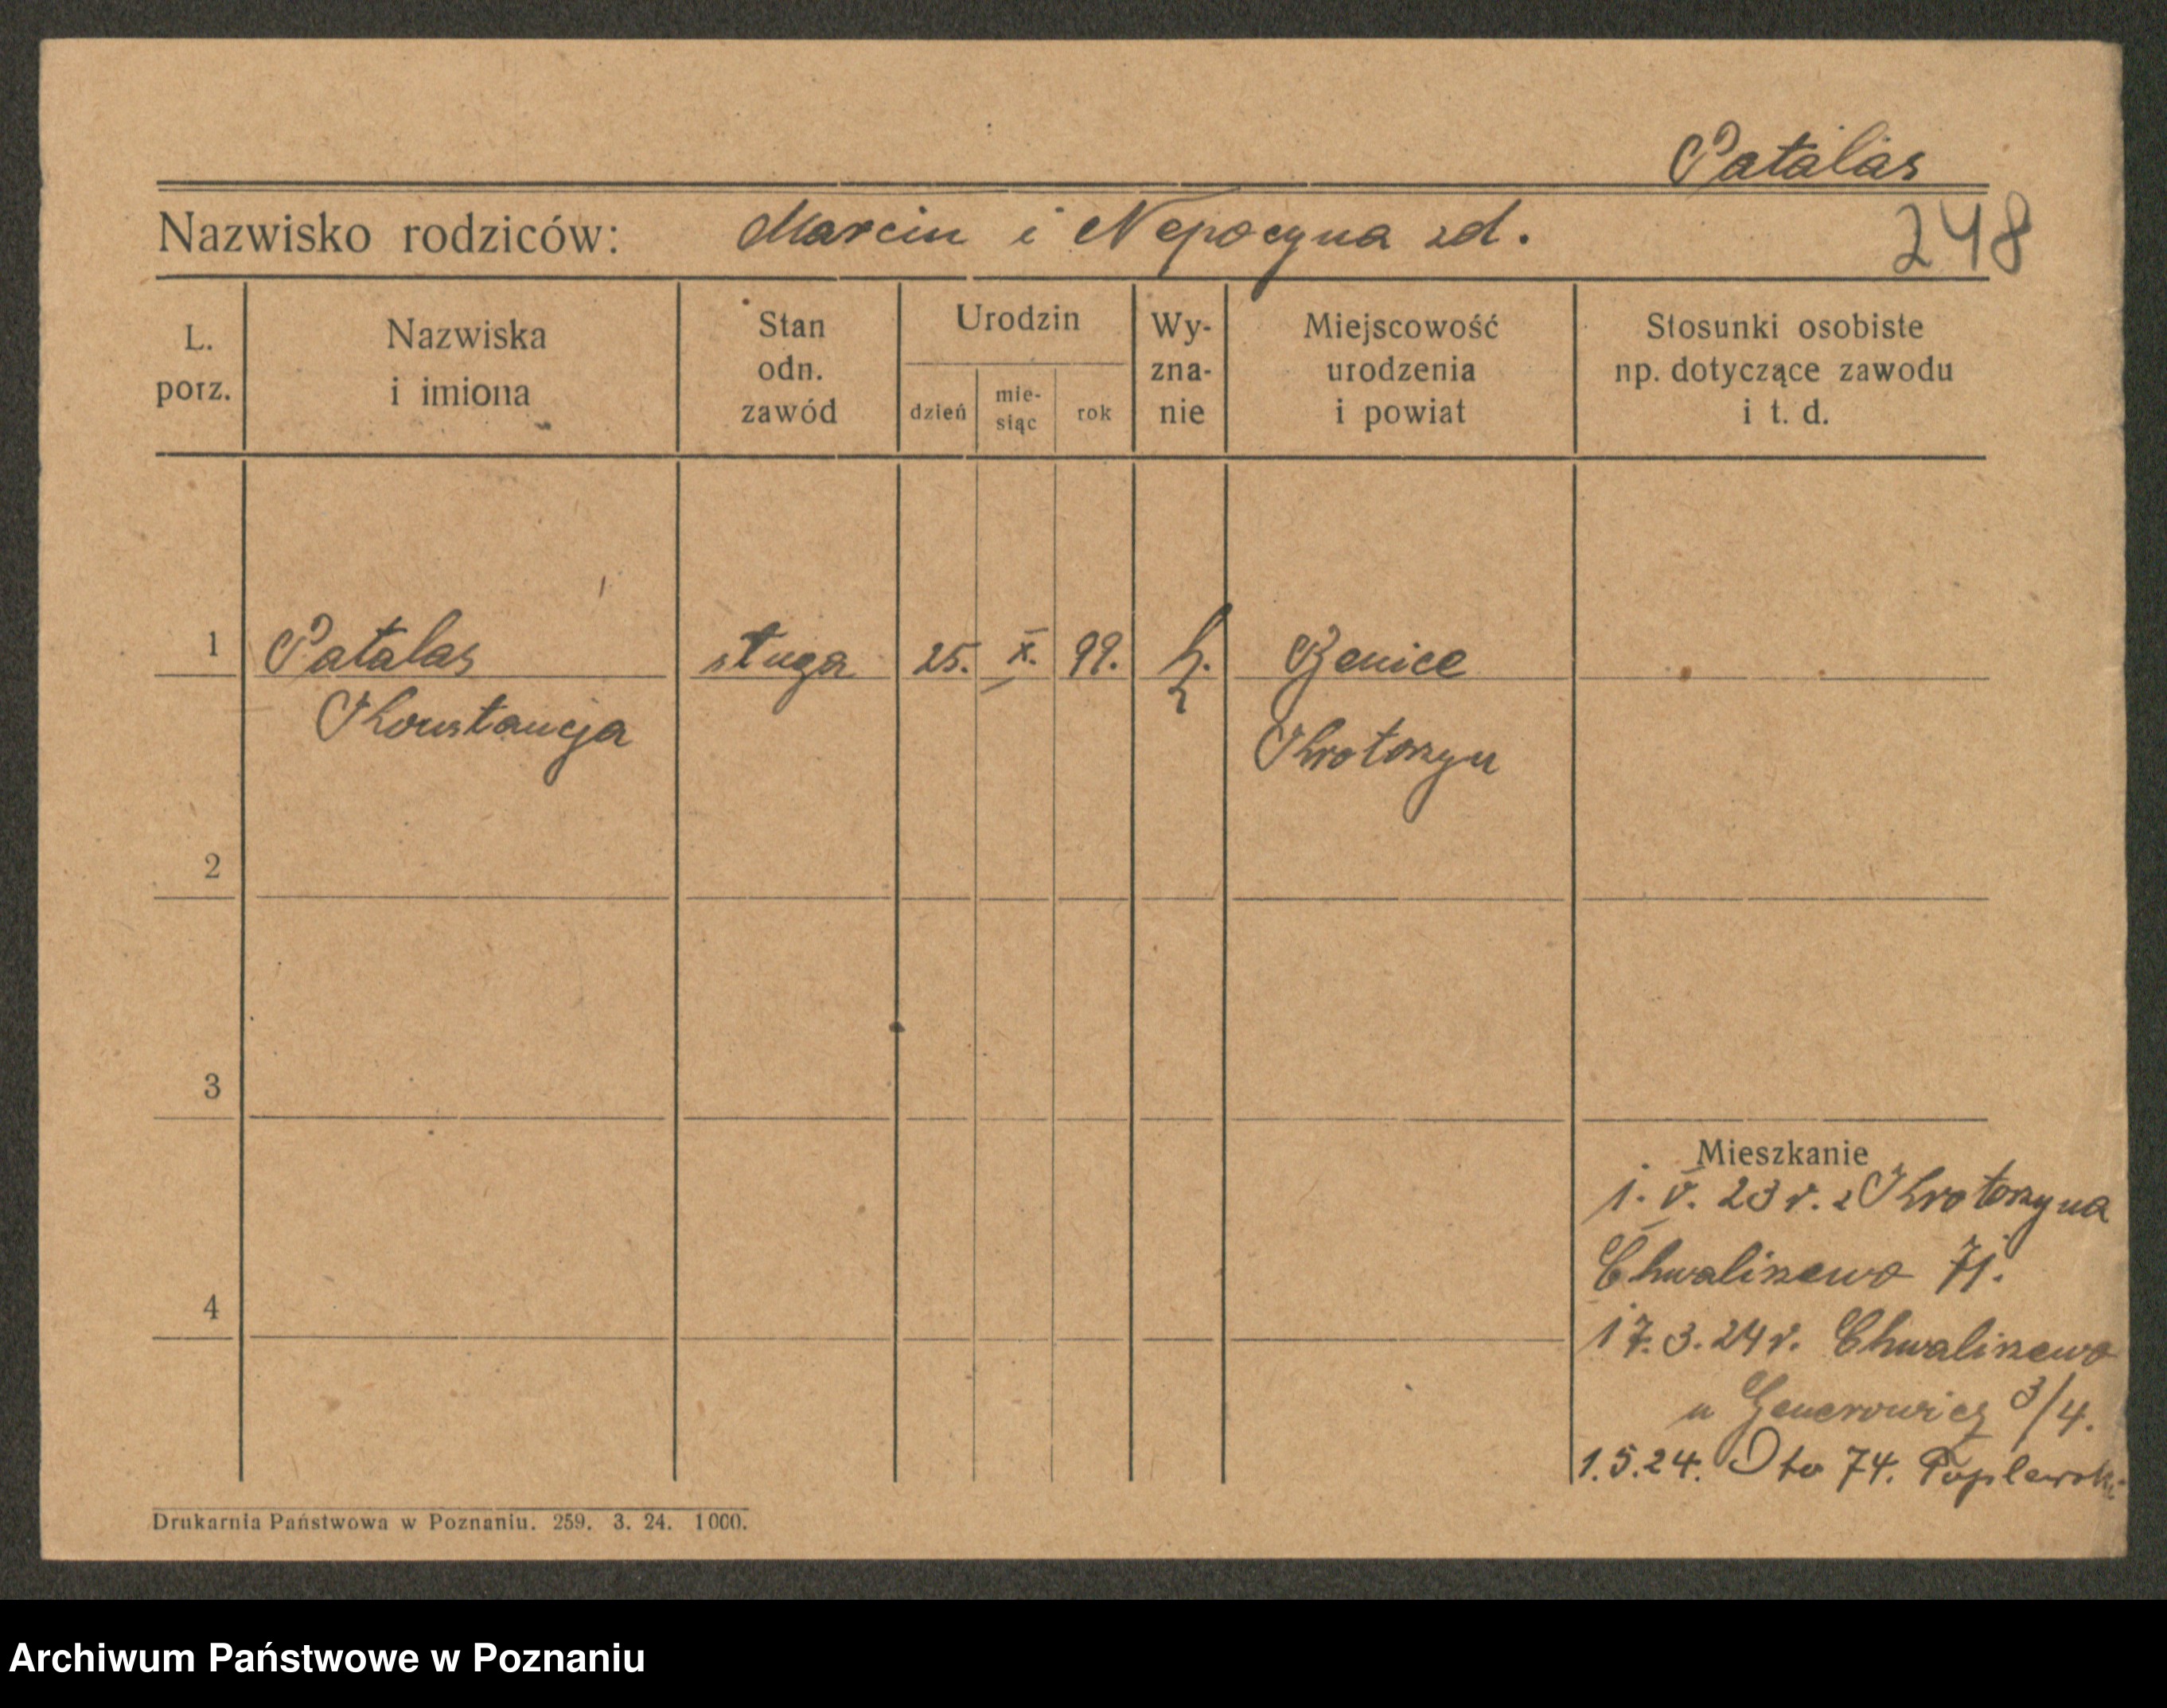 Patalas
Nazwisko rodziców: Marcin i Nepocyna zd.
248
L. porz.
Nazwiska i imiona
Stan odn. zawód
Urodzin
dzień
mie- siąc
rok
Wy- zna- nie
Miejscowość urodzenia i powiat
Stosunki osobiste np. dotyczące zawodu i t. d.
1 Patalas sługa 25. X. 99. k. Benice
Konstancja Krotoszyn
2
3
4
Mieszkanie
1. V. 23 r. z Krotoszyna
Chwaliszewo 71.
17. 3. 24 r. Chwaliszewo
u 3/4.
1. 5. 24. Dto 74. Poplewski
Drukarnia Państwowa w Poznaniu. 259. 3. 24. 1000.
Archiwum Państwowe w Poznaniu